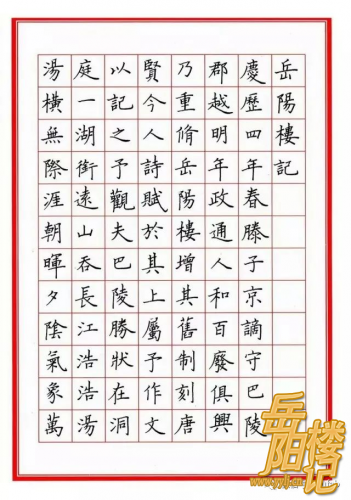 岳陽樓記
慶歷四年春滕子京謫守巴陵
郡越明年政通人和百廢俱興
乃重脩岳陽樓增其舊制刻唐
賢今人詩賦於其上屬予作文
以記之予觀夫巴陵勝狀在洞
庭一湖銜遠山吞長江浩浩湯
湯橫無際涯朝暉夕陰氣象萬
岳阳楼记